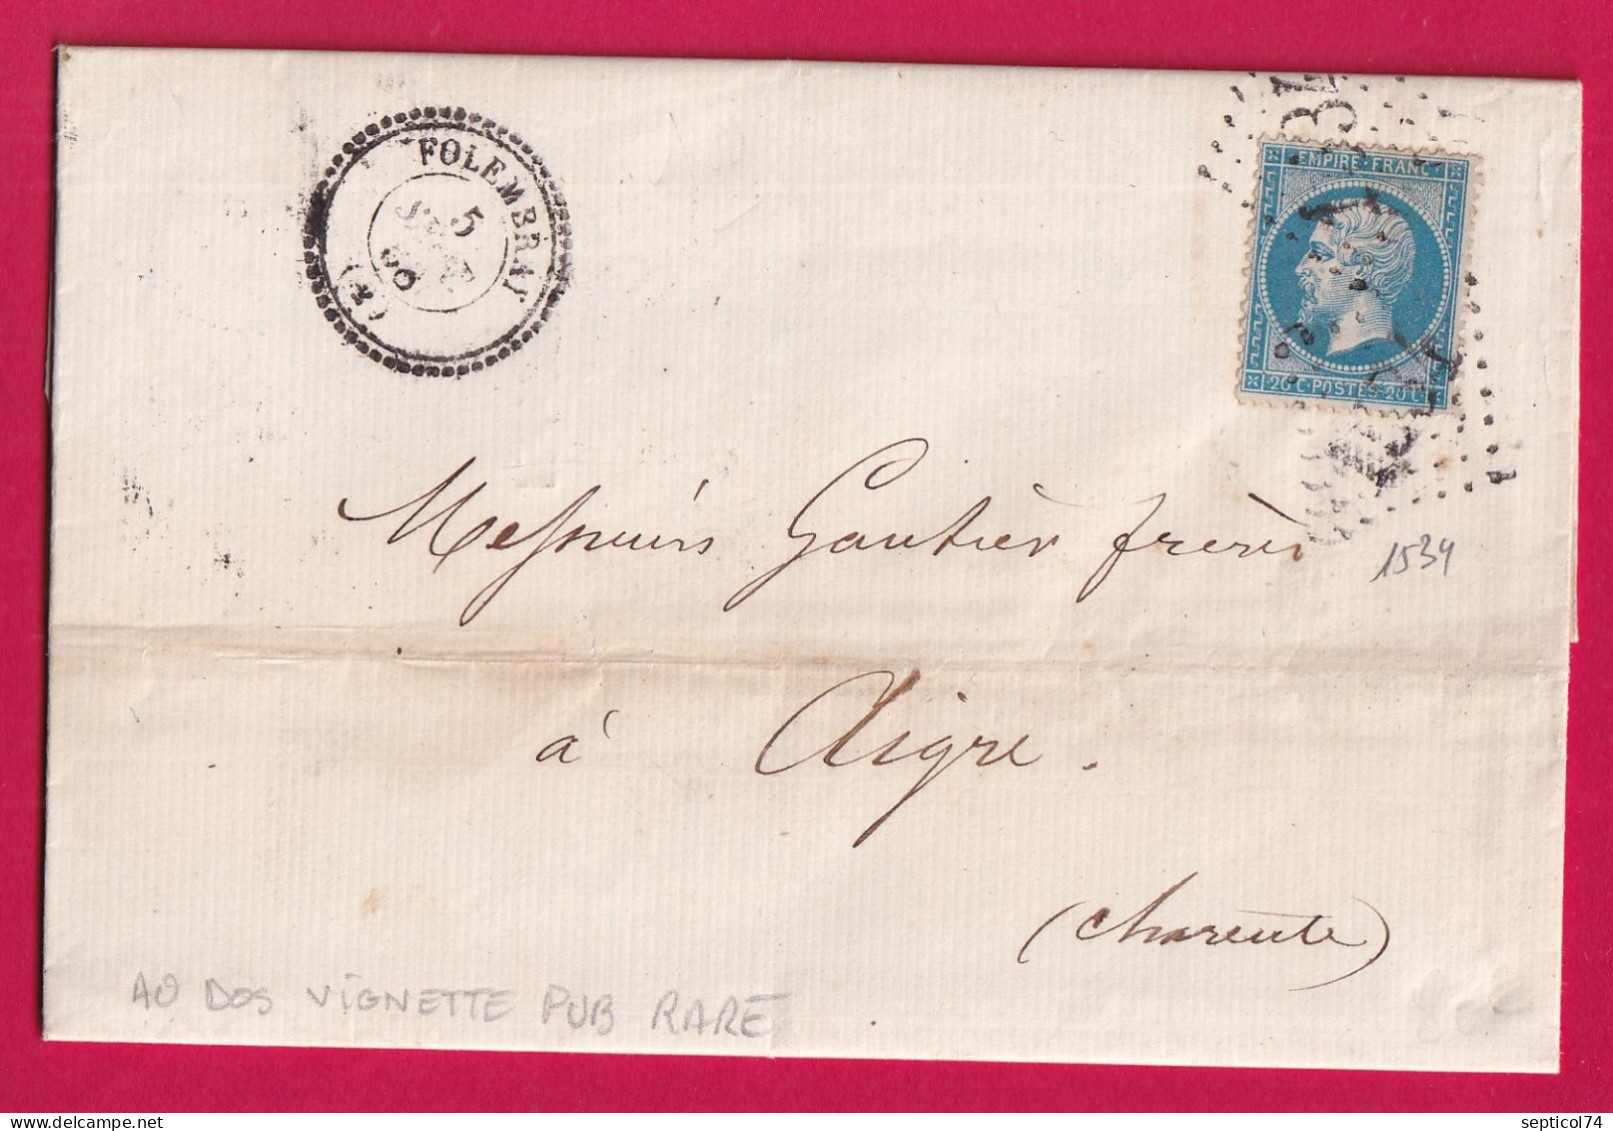 FOLEMBRAY
5
(2)
EMPIRE FRANC
20 C POSTES 20 C
Messieurs Gautier frères
1534
à Aigre.
(Charente)
AU DOS VIGNETTE PUB RARE
septicol74